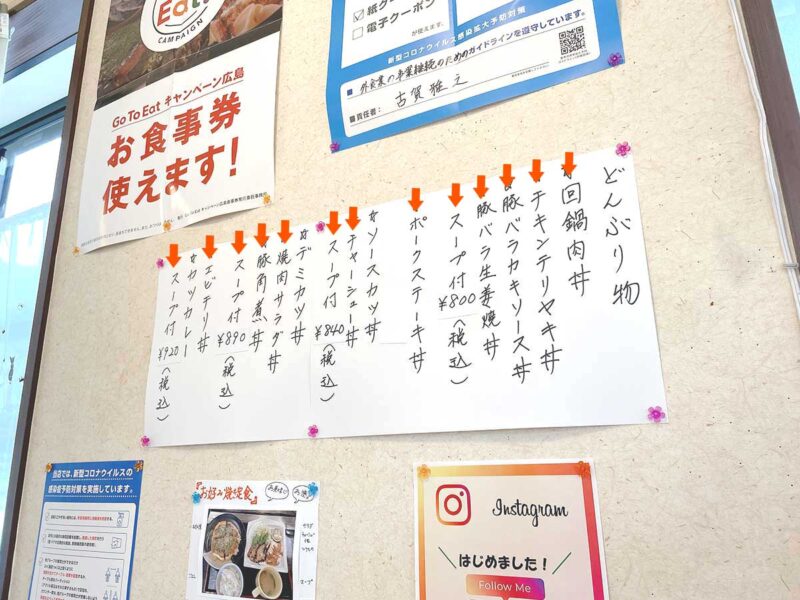 Eat!
CAMPAIGN
Go To Eat キャンペーン広島
お食事券
使えます!
紙クーポン
電子クーポン
が使えます。
新型コロナウイルス感染拡大予防対策
外食業の事業継続のためのガイドラインを遵守しています。
職責任者:
古賀雅之
どんぶり物
回鍋肉丼
チキンテリヤキ丼
豚バラカキソース丼
豚バラ生姜焼丼
スープ付 ¥800(税込)
ポークステーキ丼
☆ソースカツ丼
チャーシュー丼
スープ付 ¥840(税込)
☆デミカツ丼
焼肉サラダ丼
☆豚角煮丼
スープ付 ¥890(税込)
エビチリ丼
☆カツカレー
スープ付 ¥920(税込)
当店では、新型コロナウイルスの
感染症予防対策を実施しています。
お好み焼定食
スープ
Instagram
はじめました!
Follow Me